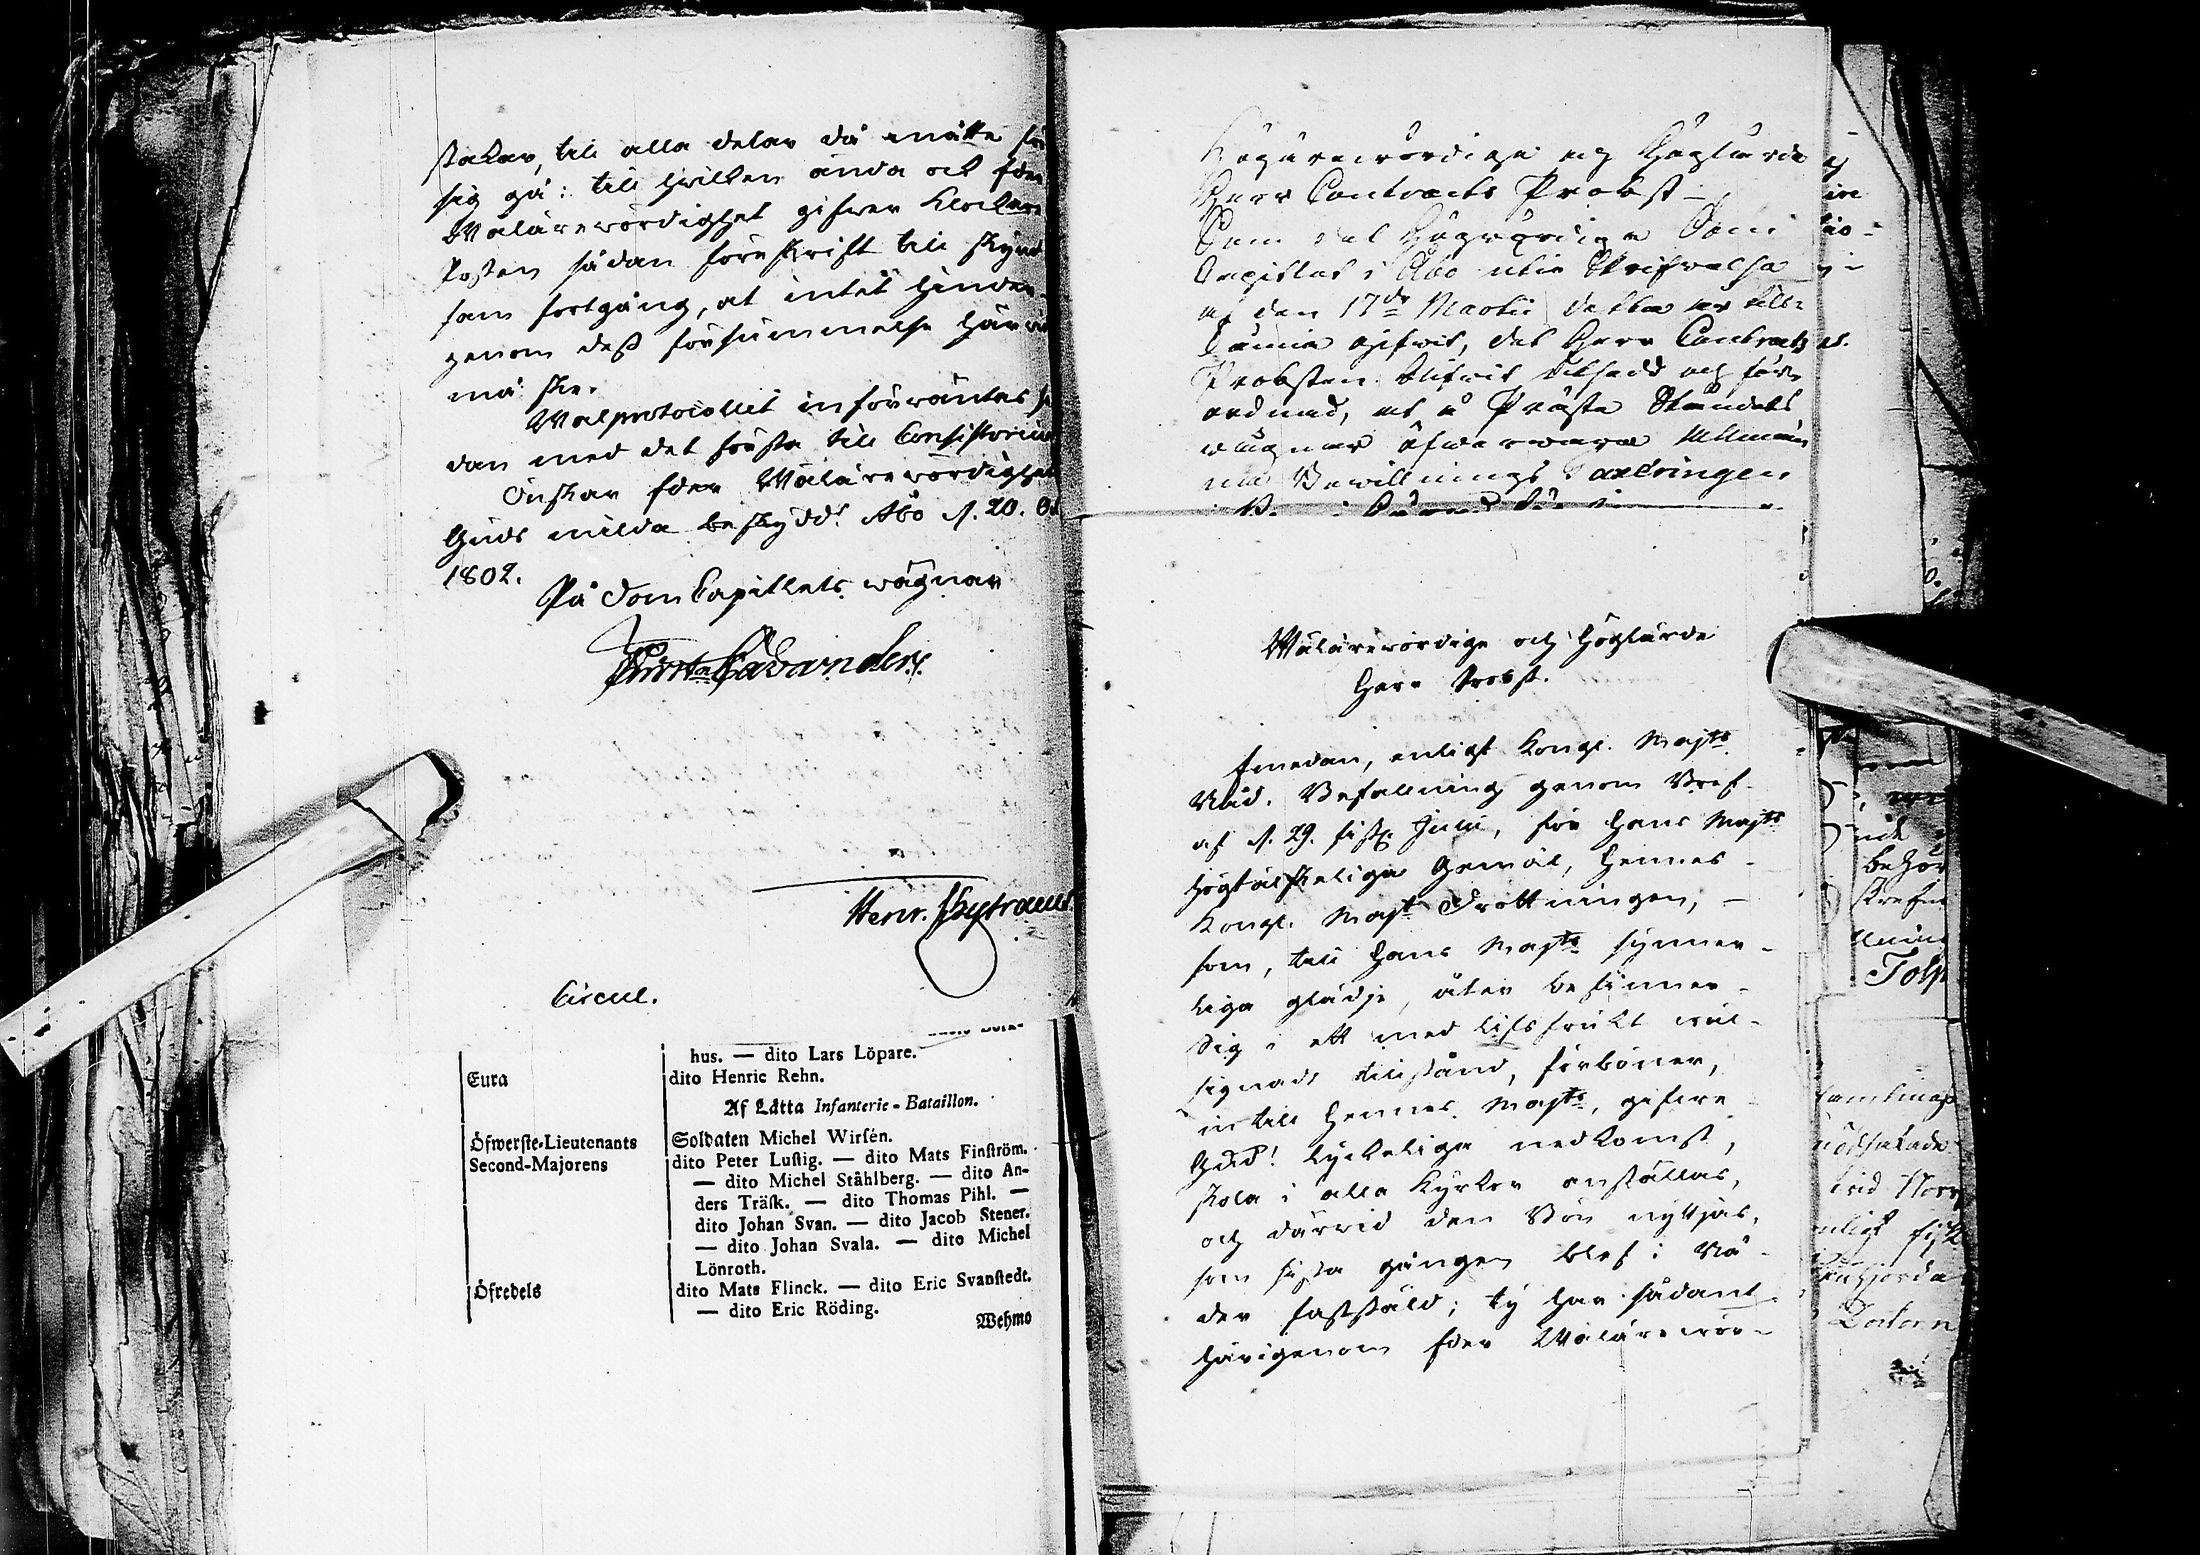 stakar, till alla delar då måtte för
sig gå: till hvilken ända ock Eder
Wälärewördighet gifwer Klockare
Posten sådan föreskrift till skynd
sam fortgång, at intet hinder
genom dess försummelse härwid
må ske.
Walprotocollet införväntes se
dan med det första till Consistorium
Önskar Eder Wälärewördighet
Guds milda beskydd. Åbo d. 20. Oc
1802.
På DomCapitlets wägnar
Henr.
Circul.
hus. — dito Lars Löpare.
Eura dito Henric Rehn.
Af Lätta Infanterie-Bataillon.
Öfwerste-Lieutenants Soldaten Michel Wirsén.
Second-Majorens dito Peter Lustig. — dito Mats Finström.
— dito Michel Ståhlberg. — dito An-
ders Träsk. — dito Thomas Pihl. —
dito Johan Svan. — dito Jacob Stener.
— dito Johan Svala. — dito Michel
Lönroth.
Öfredels dito Mats Flinck. — dito Eric Svanstedt.
— dito Eric Röding.
Wehmo
Högärewördige och Höglärde
Herr Contracts Probst
Som det Högwördige Dom
Capitlet i Åbo uti Skrifwelse
af den 17de Martii detta år till-
känna gifwit, det Herr Contracts
Probsten blifwit utsedd och för-
ordnad, at å Präste Ståndets
wägnar öfwerwara Allmän
na Bewillnings Taxeringen
Wälärewördige och Höglärde
Herr Probst.
Emedan, enligt Kongl. Majts
Nåd. Befallning genom Bref
af d. 29. sistl. Junii, för Hans Majts
högtälskeliga Gemål, Hennes
Kongl. Majt Drottningen,
som, till Hans Majts synner-
liga glädje, åter befinner
Sig i ett med lifsfrukt wäl-
signadt tillstånd, förböner,
in till Hennes Majts, gifwe
Gud! lyckeliga nedkomst,
skola i alla Kyrkor anställas,
och därwid den Bön nyttjas,
som sista gången blef i Nå-
der fastställd; ty har sådant
härigenom Eder Wälärewör-